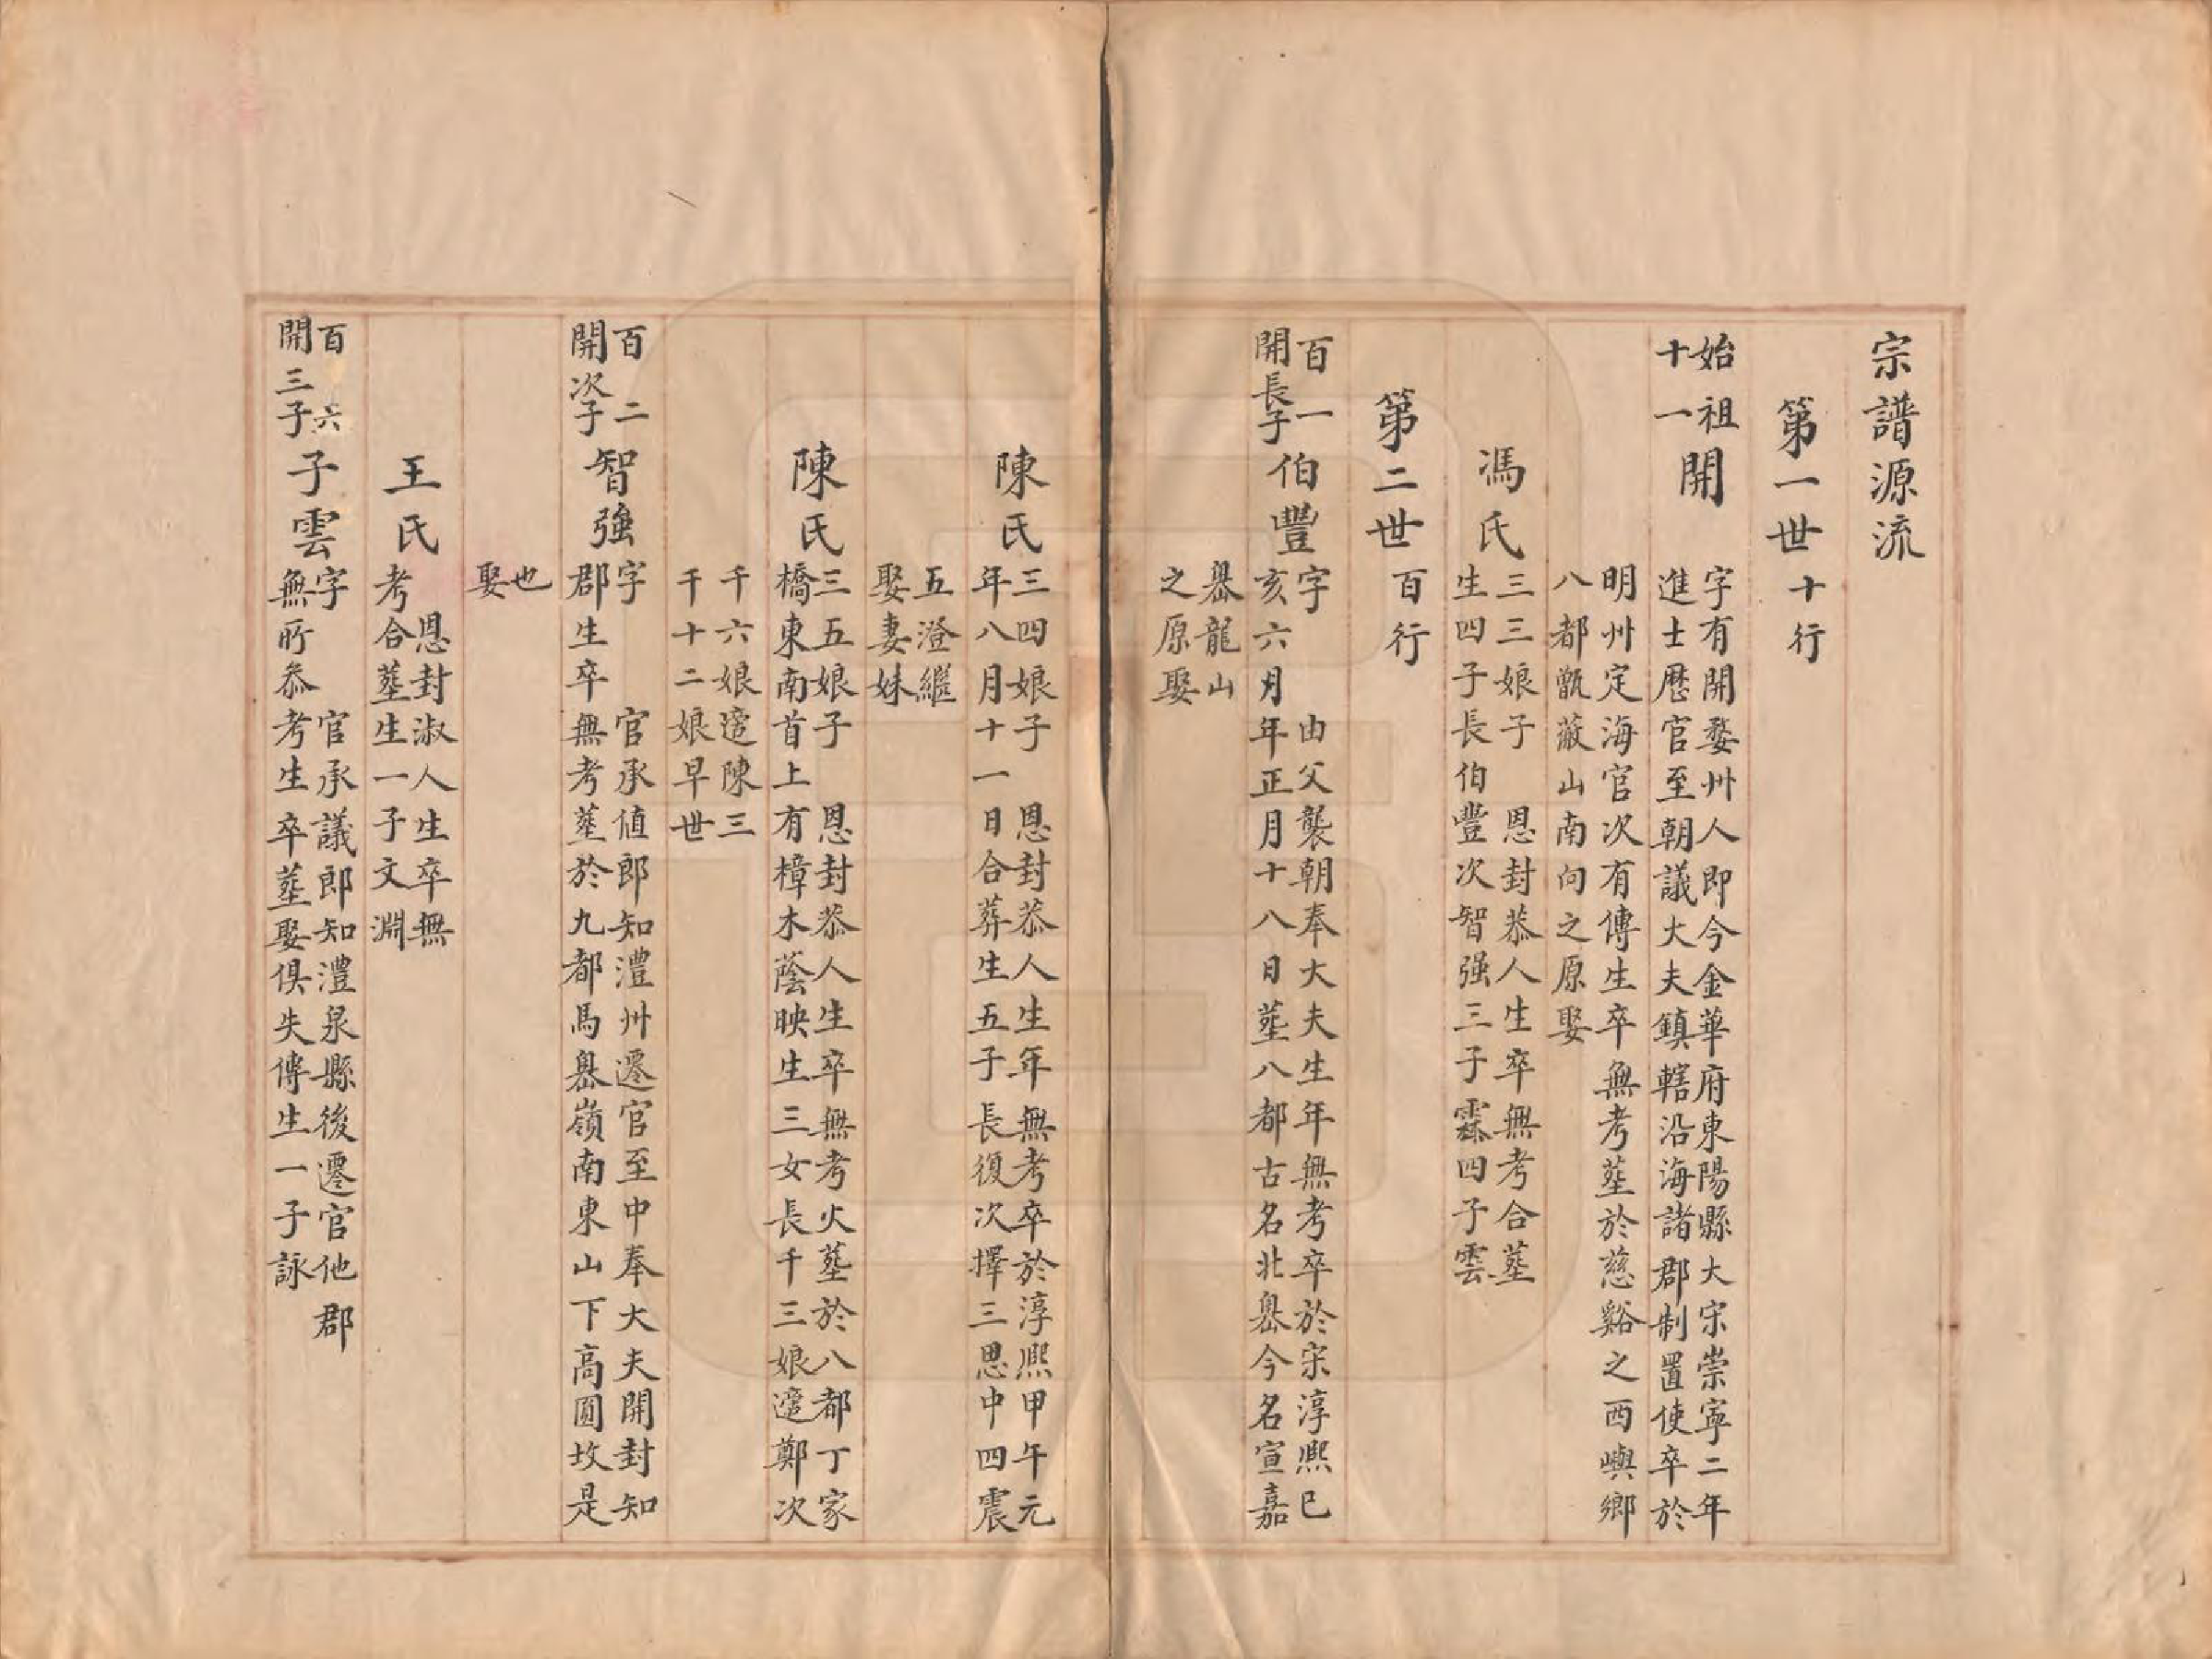 宗譜源流
第一世十行
始祖
十一
開
字有開婺州人即今金華府東陽縣大宋崇寧二年
進士歷官至朝議大夫鎮轄沿海諸郡制置使卒於
明州定海官次有傳生卒無考塟於慈谿之西嶼鄉
八都甑蔽山南向之原娶
馮氏
三三娘子 恩封恭人生卒無考合塟
生四子長伯豐次智强三子霖四子雲
第二世百行
百一
開長子
伯豐
字 由父襲朝奉大夫生年無考卒於宋淳熙巳
亥六月年正月十八日塟八都古名北嶴今名宣嘉
嶴龍山
之原娶
陳氏
三四娘子 恩封恭人生年無考卒於淳熙甲午元
年八月十一日合葬生五子長復次擇三思中四震
五澄繼
娶妻妹
陳氏
三五娘子 恩封恭人生卒無考火塟於八都丁家
橋東南首上有樟木蔭映生三女長千三娘適鄭次
千六娘適陳三
千十二娘早世
百二
開次子
智強
字 官承値郎知澧州遷官至中奉大夫開封知
郡生卒無考塟於九都馬嶴嶺南東山下高圓坟是
也
娶
王氏
恩封淑人生卒無
考合塟生一子文淵
百六
開三子
子雲
字 官承議郎知澧泉縣後遷官他郡
無所叅考生卒塟娶俱失傳生一子詠